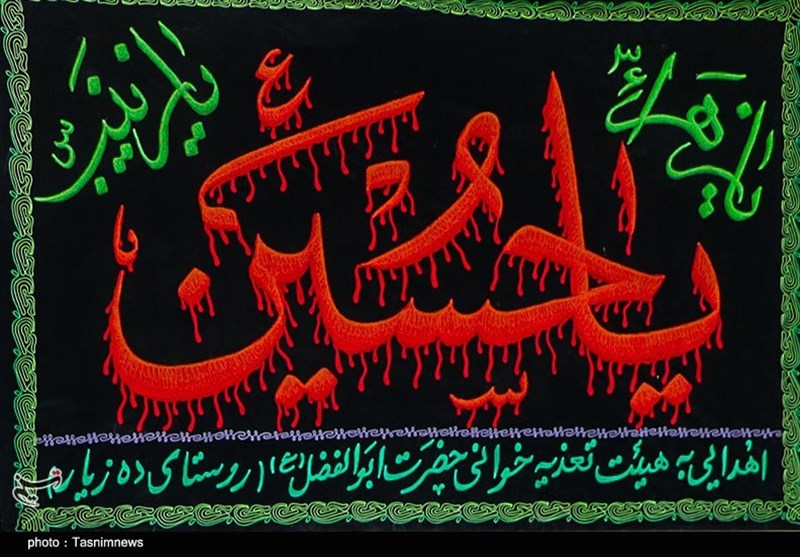 یا زهرا س
یا زینب س
یا حسین ع
اهدایی به هیئت تعذیه خوانی حضرت ابوالفضل (ع) (روستای ده زیار)
photo : Tasnimnews